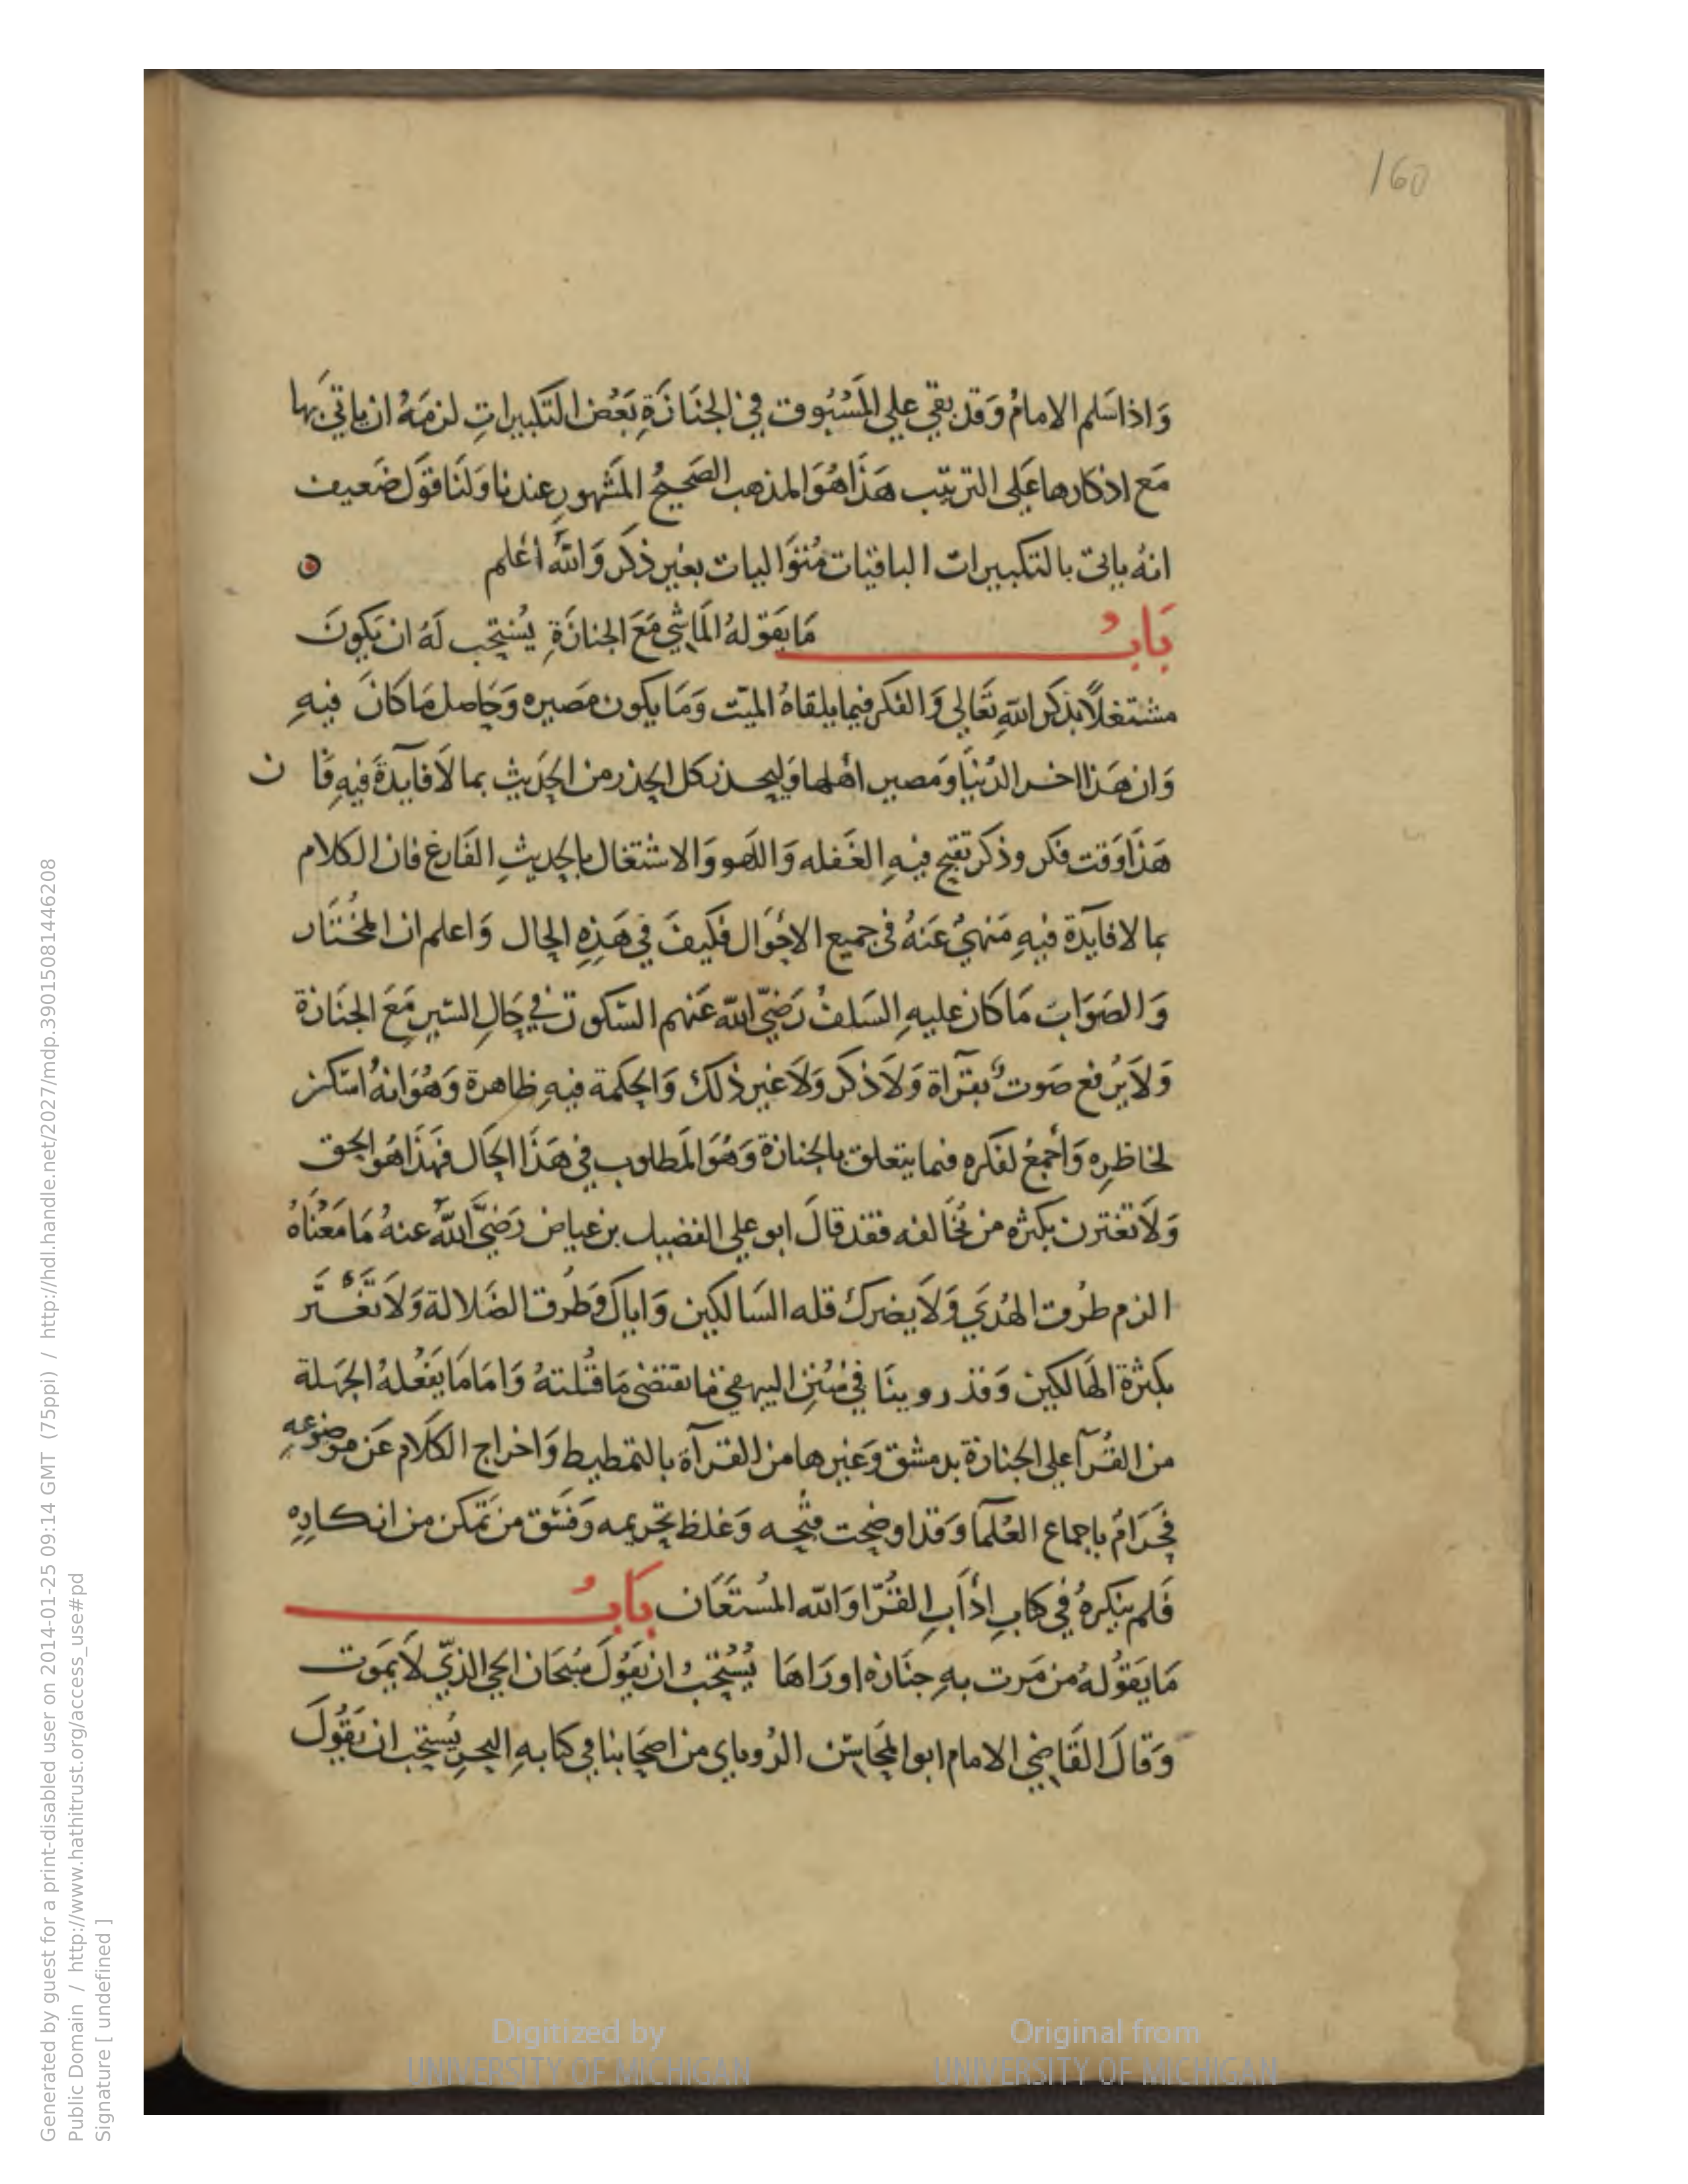 160
وَاذا سَلم الامامُ وَقد بقي علي المَسْبُوق في الجنَازَةِ بَعْض التكبيراتِ لزمَهُ ان ياتي بها
مَع اذكارها عَلى الترتيب هَذَا هُوَ المذهب الصَحيحُ المَشهور عندنا وَلنَا قَول ضَعيف
انهُ ياتي بالتكبيرات الباقيات مُتَوَاليات بغير ذكر وَالله أعْلم
بَابُ مَا يَقولهُ المَاشي مَعَ الجنازَةِ يُسْتحب لَهُ ان يَكونَ
مشتغلاً بذكر اللهِ تعَالى وَالفكر فيما يلقاهُ الميّت وَمَا يكون مصَيره وَحَاصل مَا كانَ فيهِ
وَان هَذا اخر الدُنيَا وَمصير اهْلها وَليحذر كل الحذر من الحَديث بما لَا فآيدَةَ فيهِ فَان
هَذَا وَقت فكر وذكر تقبح فيهِ الغَفله وَاللَهو وَالاشتغال بالحَديثِ الفَارغ فان الكلام
بما لا فايَدة فيهِ مَنهيُ عَنهُ في جميع الاحْوَال فكَيفَ في هَذِهِ الحال وَاعلم ان المخُتَار
وَالصَوَابَ مَا كان عليهِ السَلفُ رَضيَ الله عَنهم السّكوت في حَالِ السّير مَعَ الجنَازة
وَلَا يُرفع صَوتُ بقرآة وَلَا ذكر وَلَا غير ذلك وَالحكمة فيهِ ظاهرة وَهُوَ انهُ اسْكن
لخاطِرِه وَأَجمعُ لفكره فيما يتعلق بالجنازة وَهُوَ المَطلوب في هَذَا الحَال فهَذَا هُو الحق
وَلَا تغترن بكثره من يُخَالفه فقد قالَ ابو علي الفضيل بن عياض رَضيَ اللهُ عنهُ مَا مَعْنَاهُ
الزم طرُق الهُدَي وَلَا يضرك قله السَالكين وَاياكَ وَطُرق الضَلالة وَلَا تَغْتَر
بكثرة الهَالكين وَقد روينَا في سُنِن البيهقي مَا يقتضى مَا قُلتهُ وَامَا مَا يَفعْلهُ الجَهلة
من القُرآ علي الجنازة بدمشق وَغيرها من القرآة بالتمطيط وَاخراج الكلَام عَن موضوعهِ
فحَرَامُ باجماع العُلمآ وَقد اوضحت قبحه وَغلظ تحريمه وَفسْق من تَمَكن من انكارِه
فَلم ينكرهُ في كتابِ ادَابِ القُرّا وَالله المُستَعَان بَابُ
مَا يَقوُلهُ من مَرت بهِ جنَازه او رَاهَا يُسُتحَبُ ان يَقوُلَ سُبحَان الحي الذيّ لَا يَموت
وَقالَ القَاضي الامام ابو المحَاسن الرُوياي من اصحَابنا في كتابهِ البحرِ يُستحَب ان يَقوُلَ
Digitized by
UNIVERSITY OF MICHIGAN
Original from
UNIVERSITY OF MICHIGAN
Generated by guest for a print-disabled user on 2014-01-25 09:14 GMT (75ppi) / http://hdl.handle.net/2027/mdp.39015081446208
Public Domain / http://www.hathitrust.org/access_use#pd
Signature [ undefined ]